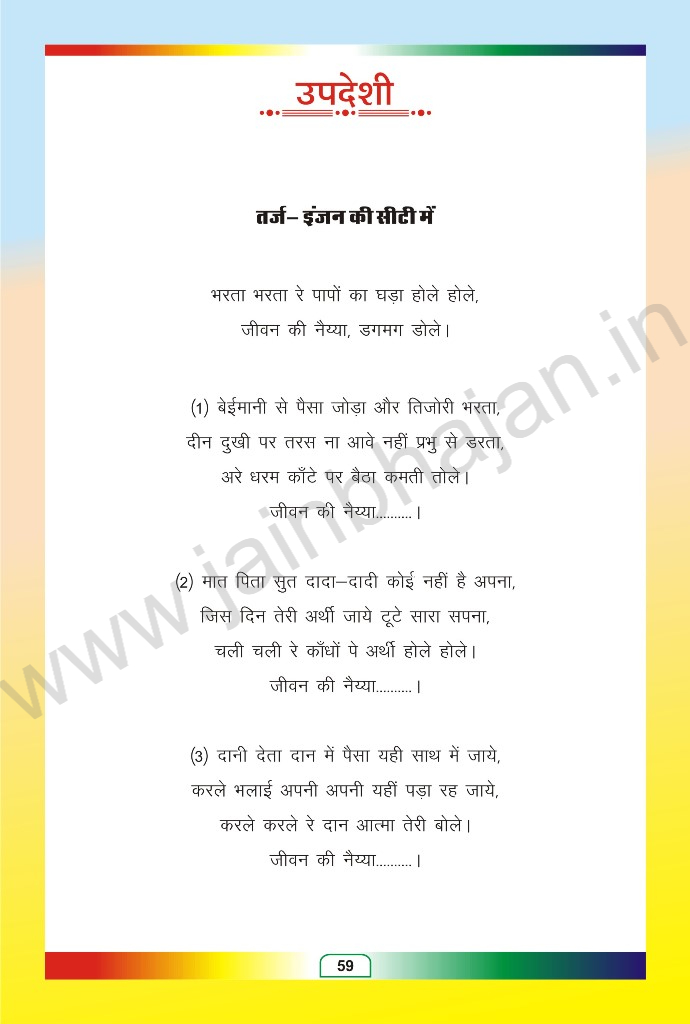 उपदेशी
तर्ज– इंजन की सीटी में
भरता भरता रे पापों का घड़ा होले होले,
जीवन की नैय्या, डगमग डोले।
(1) बेईमानी से पैसा जोड़ा और तिजोरी भरता,
दीन दुखी पर तरस ना आवे नहीं प्रभु से डरता,
अरे धरम काँटे पर बैठा कमती तोले।
जीवन की नैय्या..........।
(2) मात पिता सुत दादा–दादी कोई नहीं है अपना,
जिस दिन तेरी अर्थी जाये टूटे सारा सपना,
चली चली रे काँधों पे अर्थी होले होले।
जीवन की नैय्या..........।
(3) दानी देता दान में पैसा यही साथ में जाये,
करले भलाई अपनी अपनी यहीं पड़ा रह जाये,
करले करले रे दान आत्मा तेरी बोले।
जीवन की नैय्या..........।
59
www.jainbhajan.in